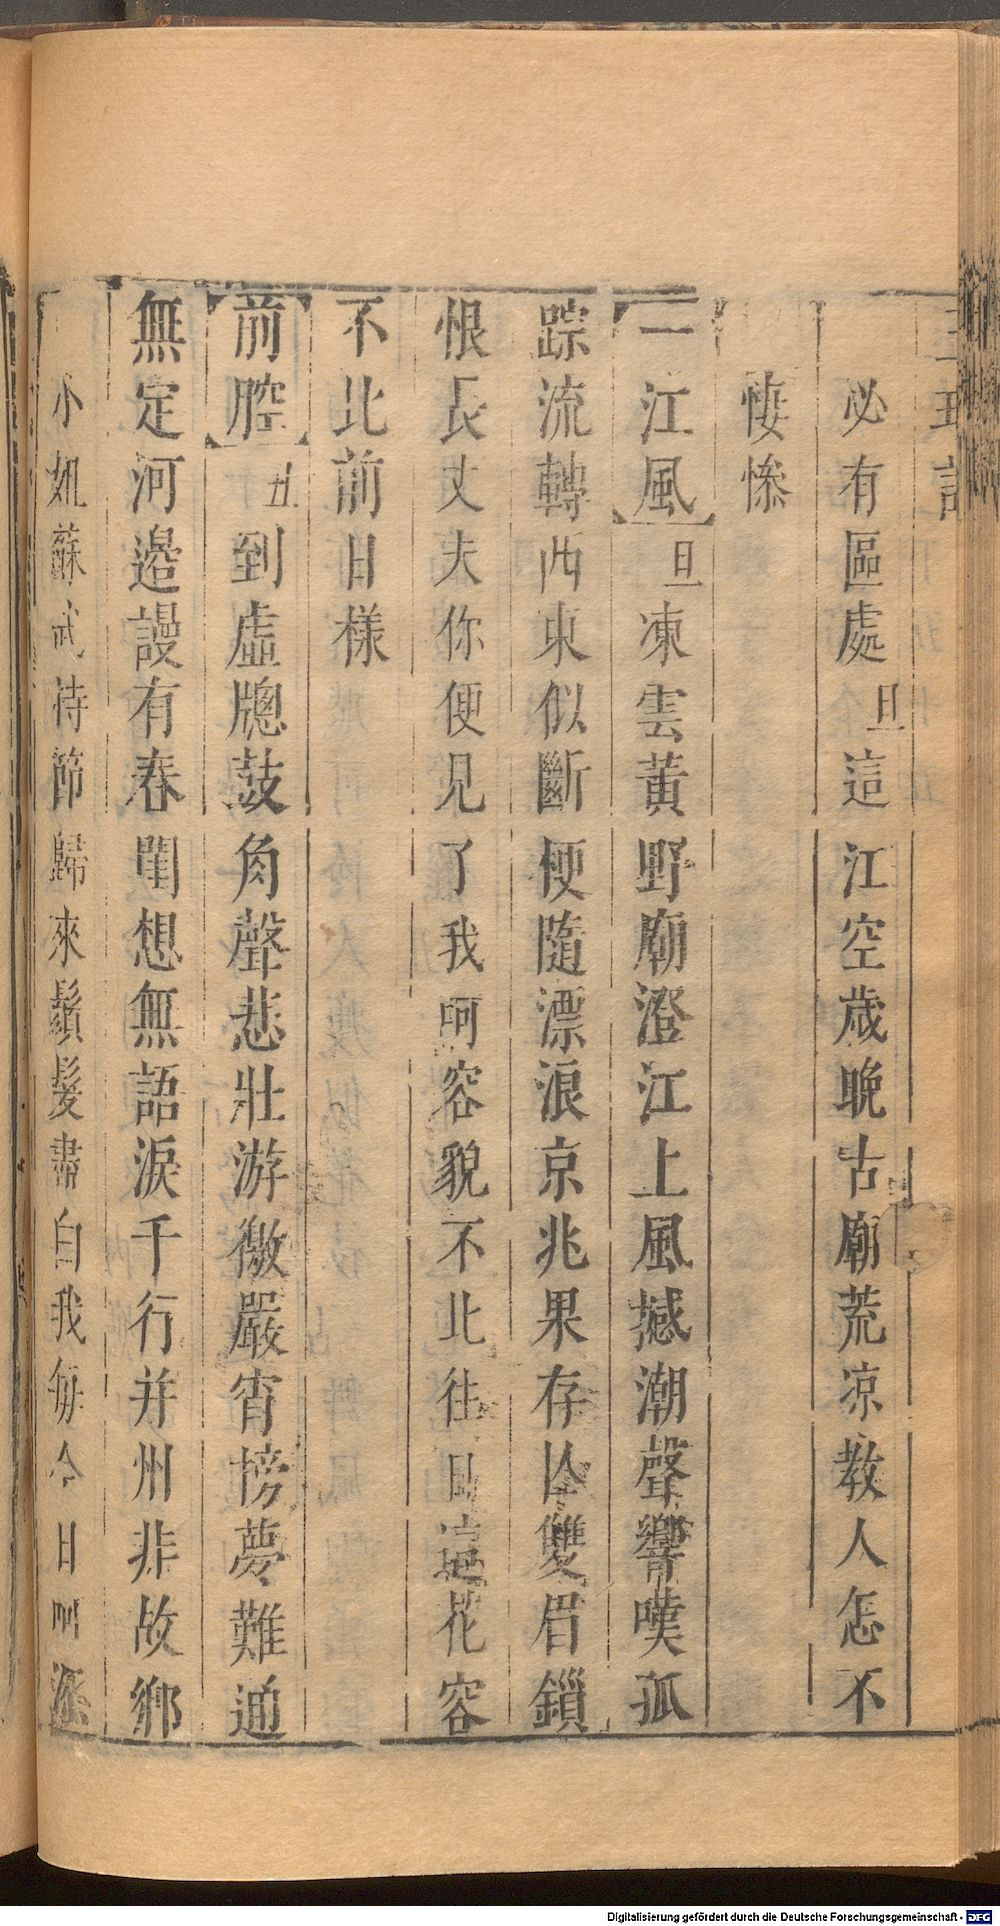 必有區處旦這江空歲晚古廟荒凉教人怎不
悽慘
一江風旦凍雲黃野廟澄江上風撼潮聲響嘆孤
踪流轉西東似斷梗隨漂浪京兆果存仐雙眉鎖
恨長丈夫你便見了我呵容貌不比往日這花容
不比前日樣
前腔丑到虛牕鼓角聲悲壯游徼嚴宵搒夢難通
無定河邉謾有春閨想無語淚千行并州非故鄉
小姐蘇武持節歸來鬚髮盡白我每今日
Digitalisierung gefördert durch die Deutsche Forschungsgemeinschaft - DFG